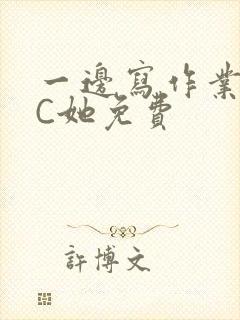 一邊寫作業
C她免費
許博文